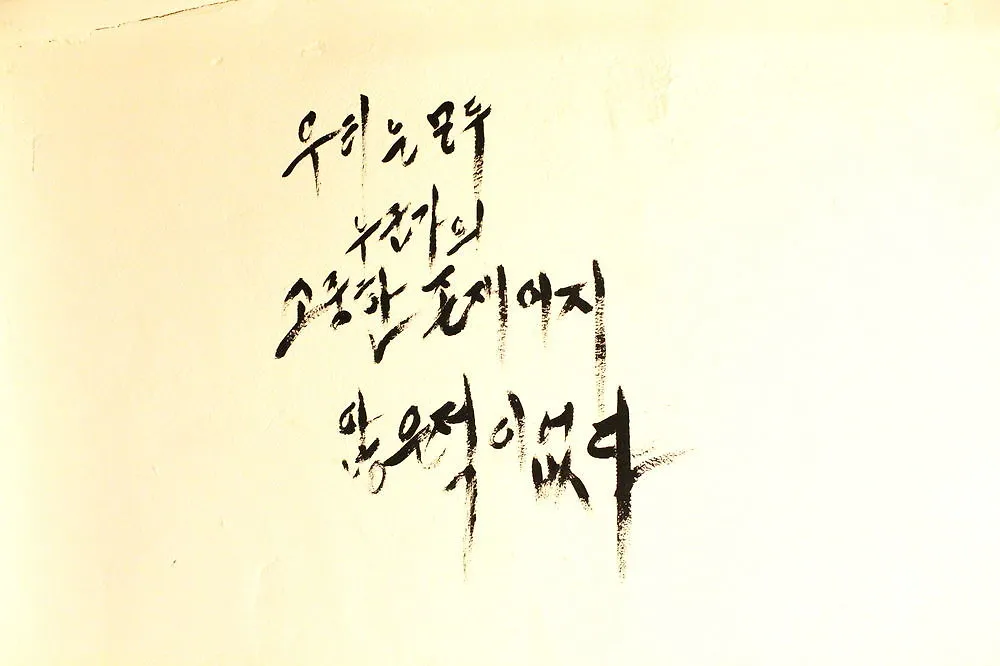 우리는 모두
누군가의
소중한 존재이지
않은 적이 없다